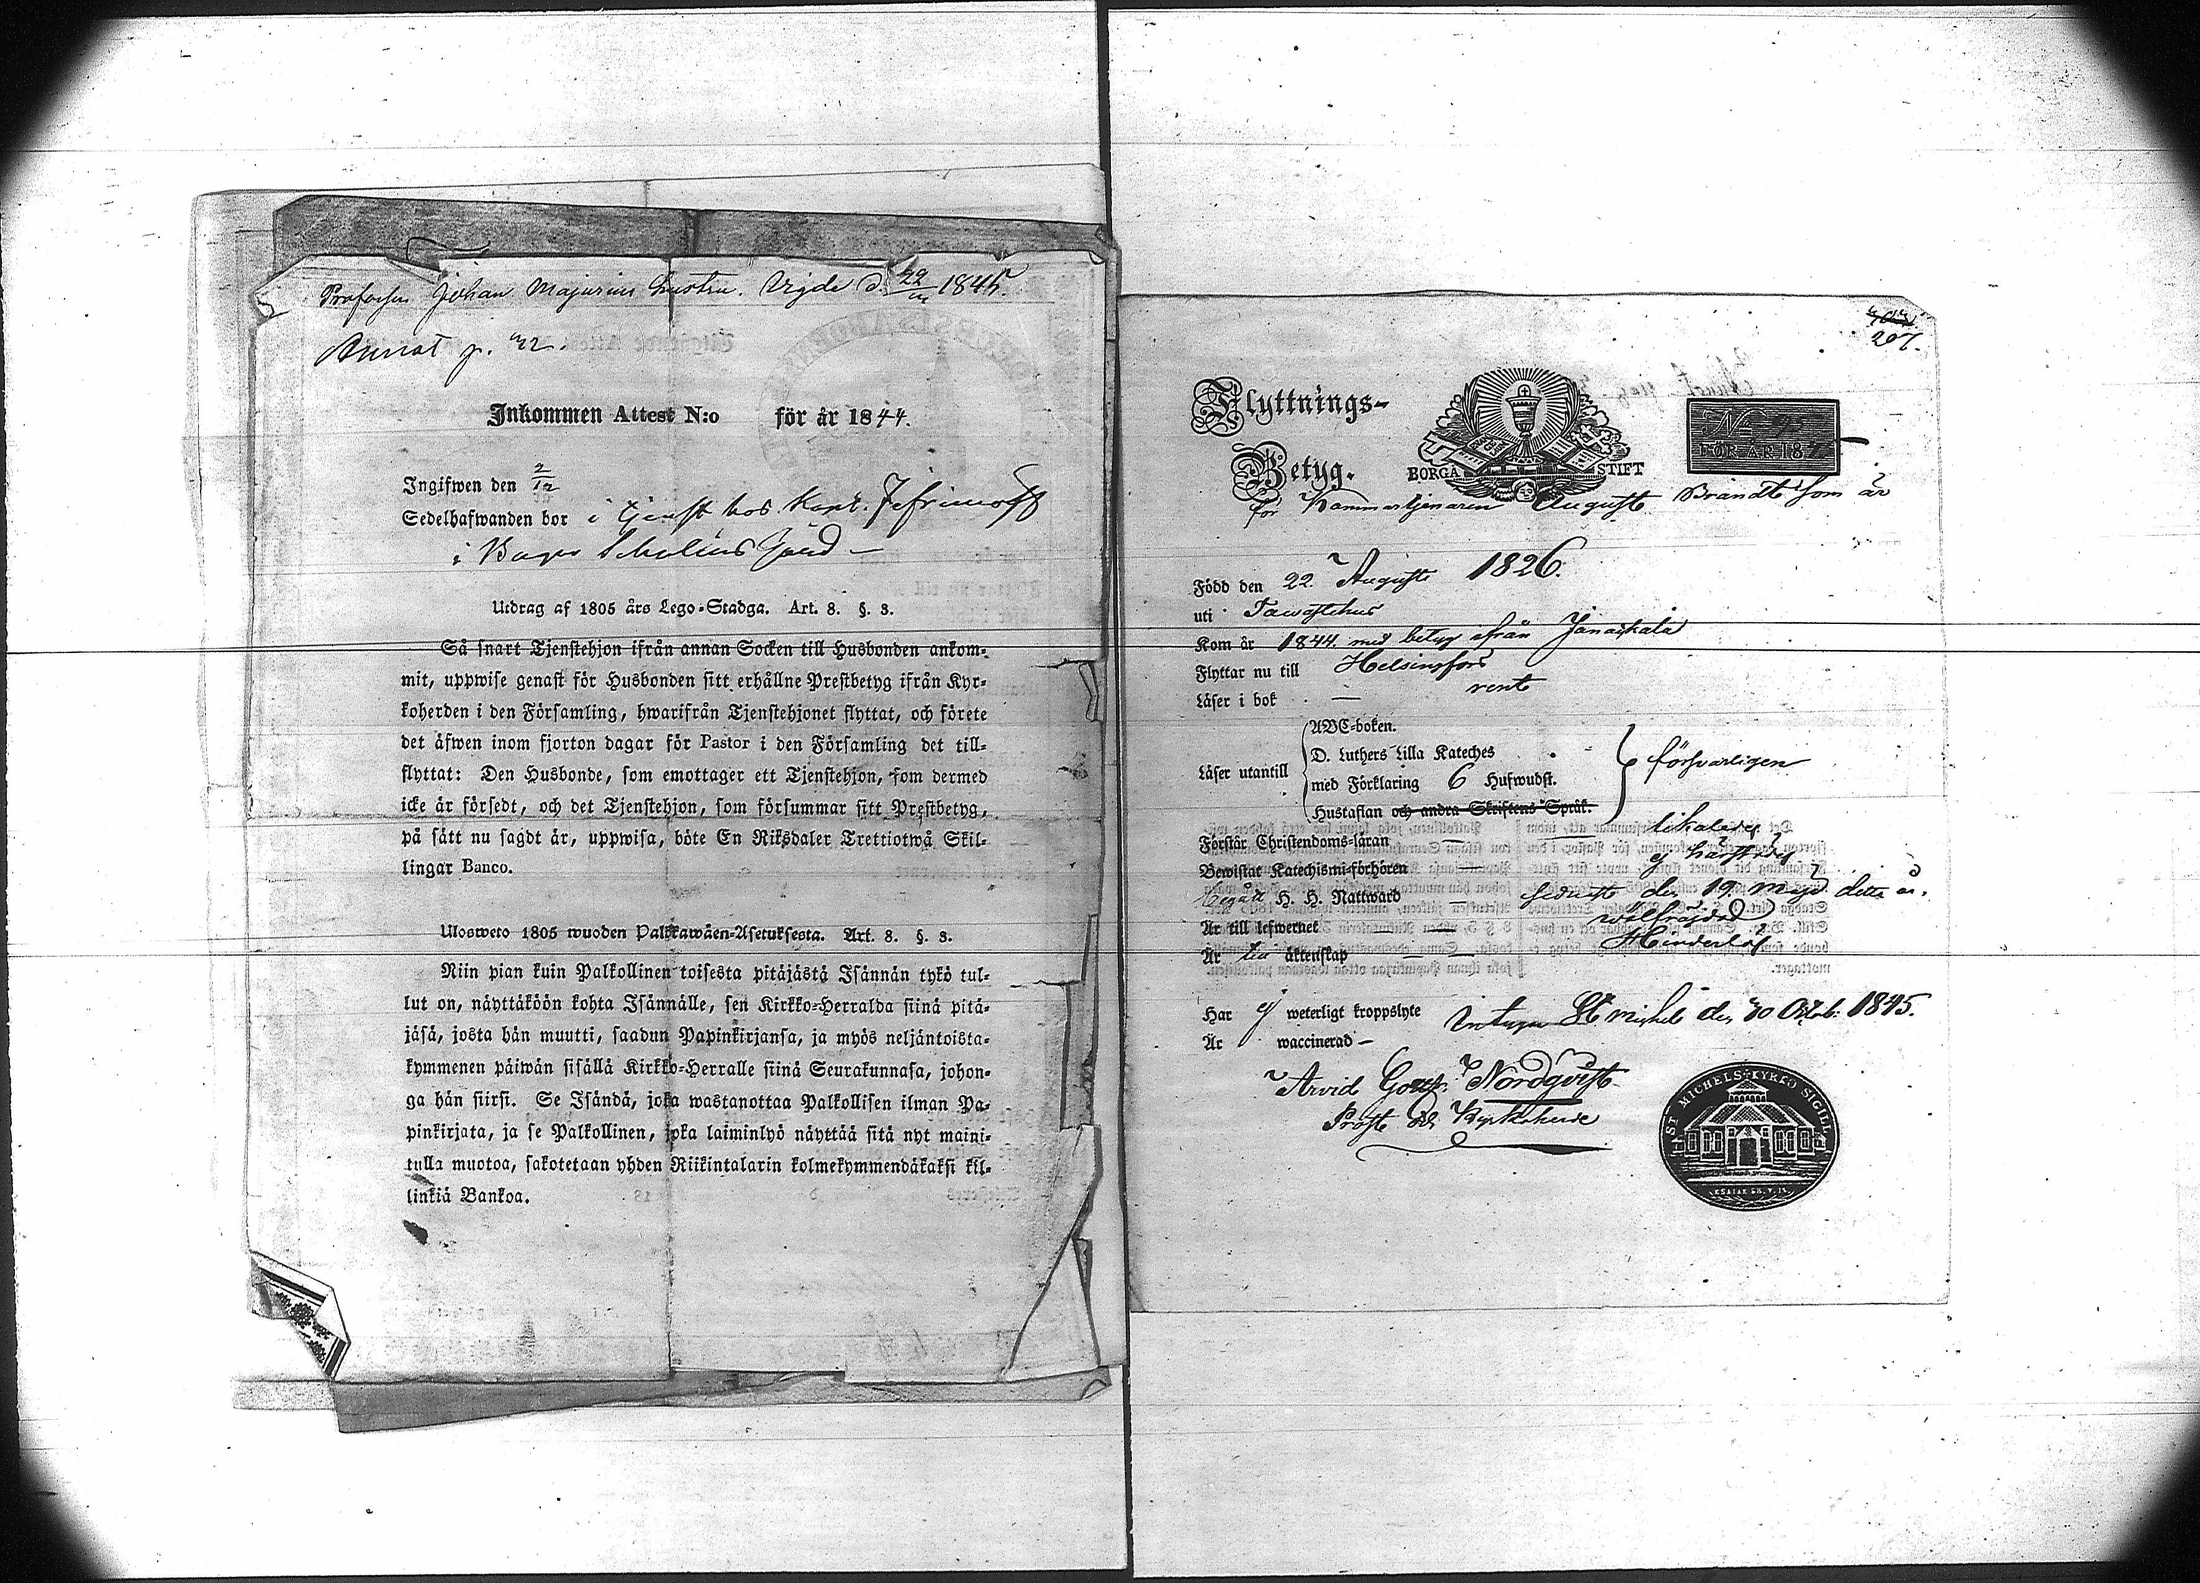 Johan Majurius hustru. Vigde d. 22 1845.
p. 32.
Inkommen Attest N:o för år 1844.
Ingifwen den 2/12
Sedelhafwanden bor i tjenst hos Kapt. Jefrimoff
i Schelins Gård —
Utdrag af 1805 års Lego-Stadga. Art. 8. §. 3.
Så snart Tjenstehjon ifrån annan Socken till Husbonden ankom-
mit, uppwise genast för Husbonden sitt erhållne Prestbetyg ifrån Kyr-
koherden i den Församling, hwarifrån Tjenstehjonet flyttat, och förete
det äfwen inom fjorton dagar för Pastor i den Församling det till-
flyttat: Den Husbonde, som emottager ett Tjenstehjon, som dermed
icke är försedt, och det Tjenstehjon, som försummar sitt Prestbetyg,
på sätt nu sagdt är, uppwisa, böte En Riksdaler Trettiotwå Skil-
lingar Banco.
Ulosweto 1805 wuoden Palkkawäen-Asetuksesta. Art. 8. §. 3.
Niin pian kuin Palkollinen toisesta pitäjästä Isännän tykö tul-
lut on, näyttäköön kohta Isännälle, sen Kirkko-Herralda siinä pitä-
jäsä, josta hän muutti, saadun Papinkirjansa, ja myös neljäntoista-
kymmenen päiwän sisällä Kirkko-Herralle siinä Seurakunnasa, johon-
ga hän siirsi. Se Isändä, joka wastanottaa Palkollisen ilman Pa-
pinkirjata, ja se Palkollinen, joka laiminlyö näyttää sitä nyt maini-
tulla muotoa, sakotetaan yhden Riikintalarin kolmekymmendäkaksi kil-
linkiä Bankoa.
207.
Flyttnings-
Betyg.
BORGÅ STIFT
FÖR ÅR 18
för Kammartjenaren August Brandt som är
Född den 22 Augusti 1826.
uti Tawastehus
Kom år 1844 med betyg ifrån Janakkala
Flyttar nu till Helsingfors
Läser i bok — rent
Läser utantill
ABC-boken.
D. Luthers Lilla Kateches
med Förklaring 6 Hufwudst.
Hustaflan och andra Skriftens Språk.
försvarligen
Förstår Christendoms-läran — likaledes
Bewistat Katechismi-förhören — ej härstädes
Begått H. H. Nattward — sednast den 19 Maji detta år.
Är till lefwernet — wälfräjdad
Är till äktenskap — — Hinderlös
Har ej weterligt kroppslyte
Är waccinerad —
St Michel den 30 Octob. 1845.
Arvid Gottfr. Nordqvist
Prost och Kyrkoherde
ST MICHELS KYRKO SIGILL